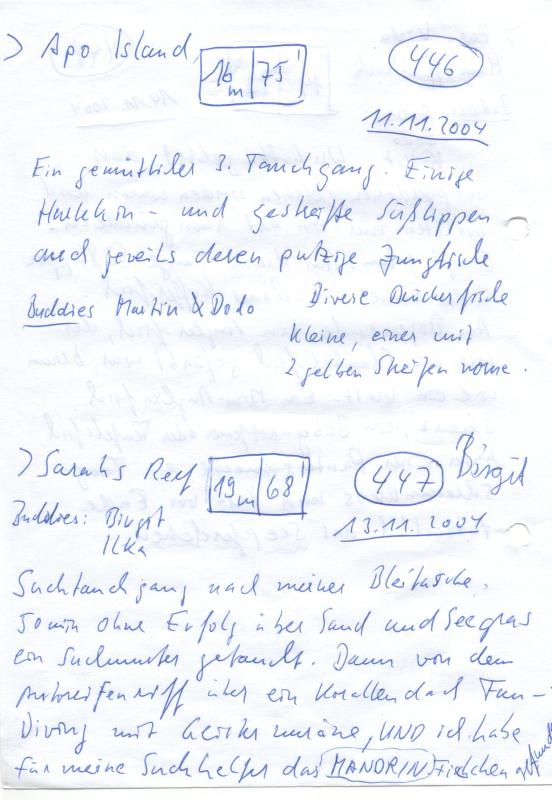 > Apo Island, 16 m 75' 446
11.11.2004
Ein gemütliches 3. Tauchgang. Einige
Harlekin- und gestreifte Süßlippen
und jeweils deren putzige Jungfische
Buddies Martin & Dodo Divere Drückerfische
kleine, einer mit
2 gelben Streifen vorne.
> Sarahs Reef 19 m 68' 447 Birgit
13.11.2004
Buddies: Birgit
Ilka
Suchtauchgang nach meiner Bleitasche.
50 min ohne Erfolg über Sand und Seegras
ein Suchmuster getaucht. Dann von dem
Autoreifenriff über ein Korallendach Fun-
Diving mit Geistermuräne, UND ich habe
für meine Suchhelfer das MANDRIN Fischchen gefunden